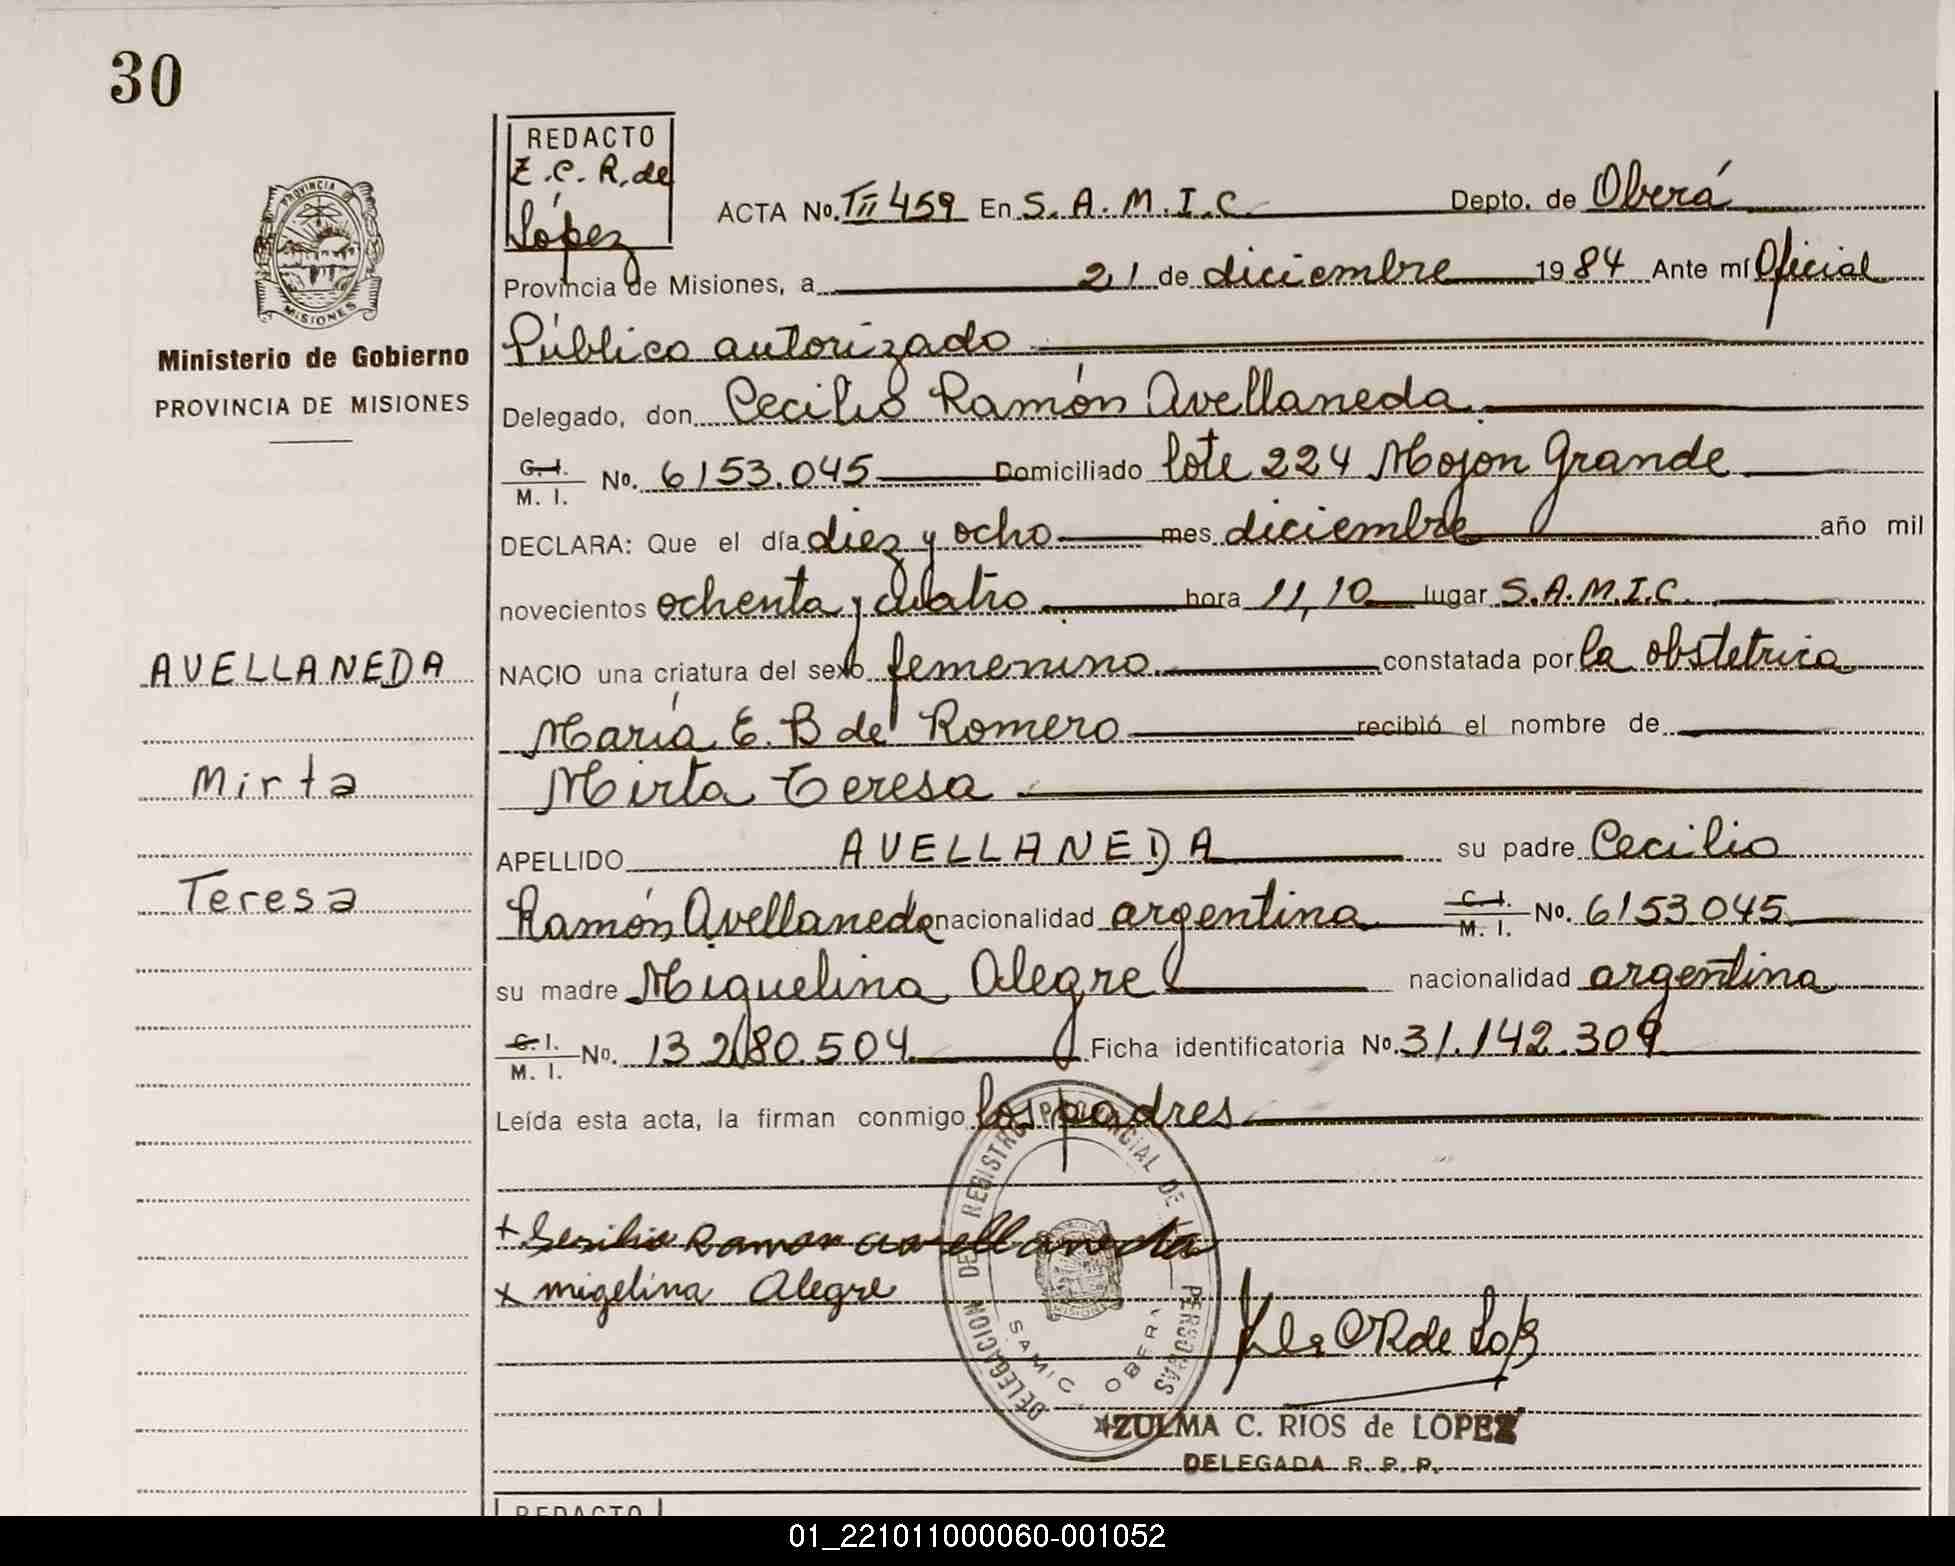 30
REDACTO
Z.C.R. de
López
ACTA No. TII 459 En S.A.M.I.C. Depto. de Oberá
Provincia de Misiones, a 21 de diciembre 1984 Ante mí Oficial
Público autorizado
Delegado, don Cecilio Ramón Avellaneda
C.I. M.I. No. 6153.045 Domiciliado lote 224 Mojon Grande
DECLARA: Que el día diez y ocho mes diciembre año mil
novecientos ochenta y cuatro hora 11,10 lugar S.A.M.I.C.
NACIO una criatura del sexo femenino constatada por la obstetrica
María E. B de Romero recibió el nombre de
Mirta Teresa
APELLIDO AVELLANEDA su padre Cecilio
Ramón Avellaneda nacionalidad argentina C.I. M.I. No. 6153045
su madre Miguelina Alegre nacionalidad argentina
C.I. M.I. No. 13280.504 Ficha identificatoria No. 31.142.309
Leída esta acta, la firman conmigo los padres
+ Sesilio Ramon avellaneda
x migelina Alegre
PROVINCIA
MISIONES
Ministerio de Gobierno
PROVINCIA DE MISIONES
AVELLANEDA
Mirta
Teresa
DELEGACION DEL REGISTRO PROVINCIAL DE LAS PERSONAS
SAMIC OBERA
MISIONES
ZULMA C. RIOS de LOPEZ
DELEGADA R. P. P.
REDACTO
01_221011000060-001052